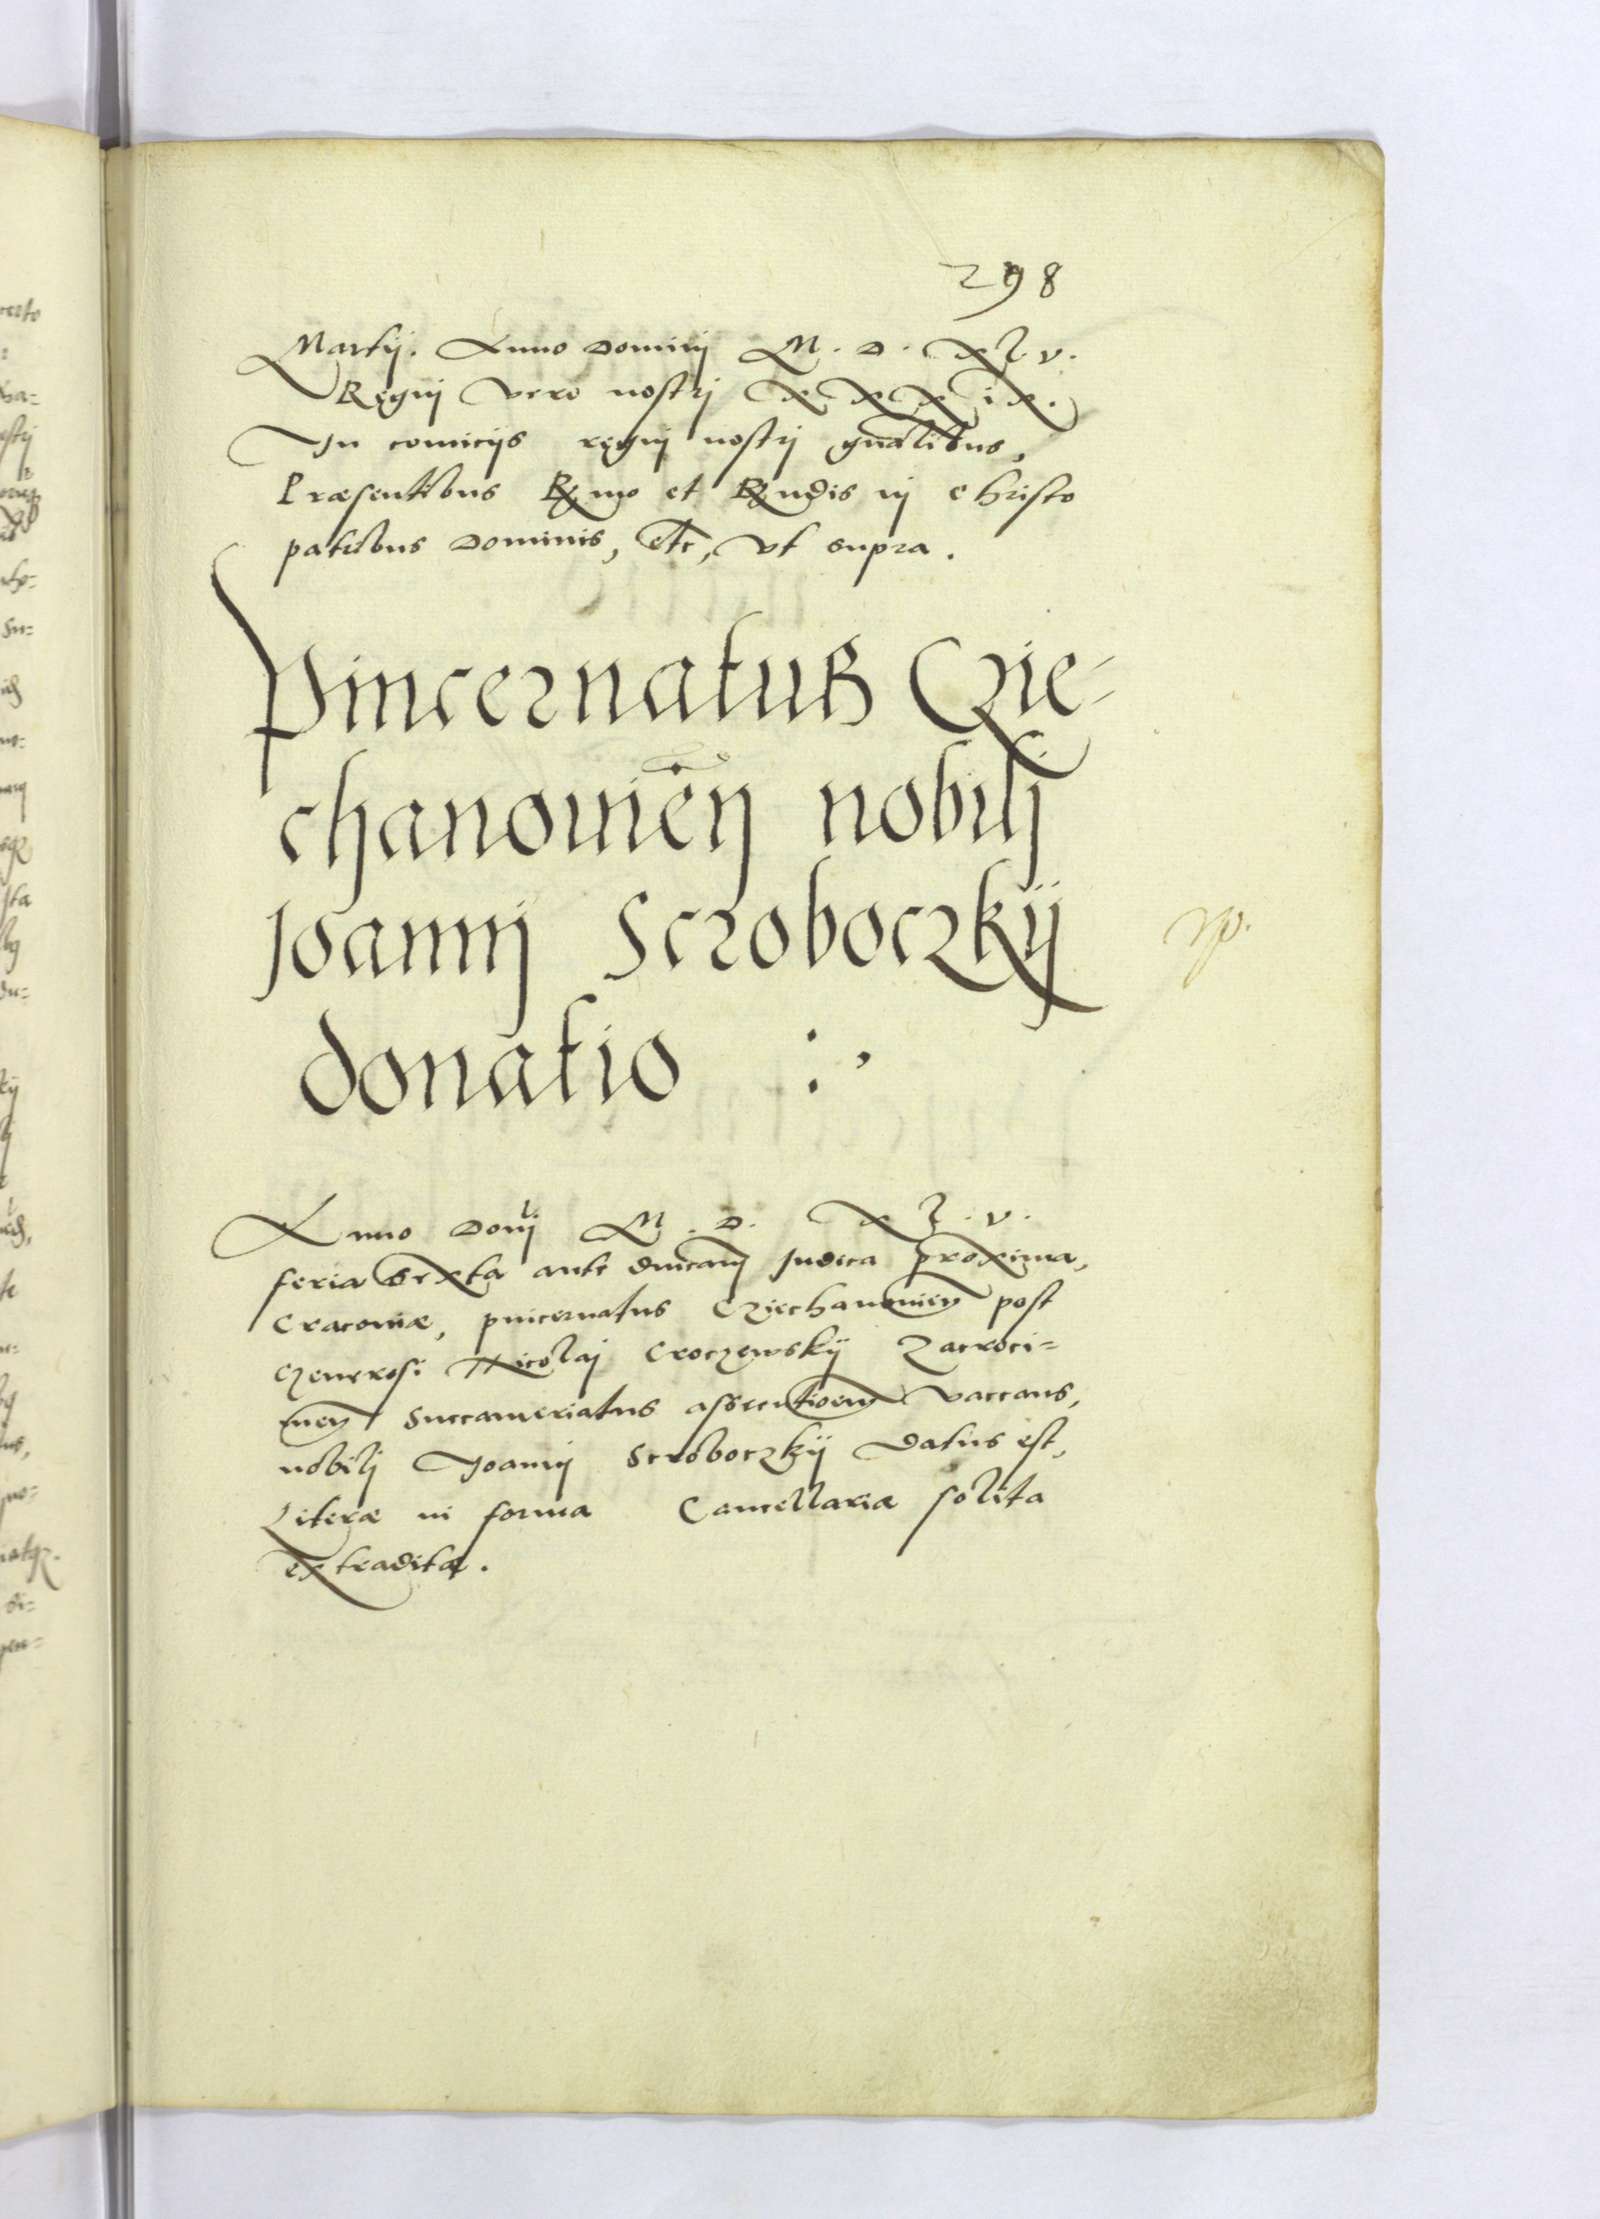 298
Martij. Anno Dominj M. D. XLV.
Regnj vero nostrj XXXIX.
In comicijs regnj nostrj gnalibus,
Præsentibus Rmo et Rndis in Christo
patribus Dominis, etc, vt supra.
Pincernatus Czie-
chanouien nobilj
Joannj Scroboczkij
donatio :,
Anno Donj M. D. XLV.
feria sexta ante dnicam Judica proxima,
Cracouiæ, pincernatus Cziechanouien post
Generosi Nicolaj Croczewskij Zacroci-
men Succameriatus assecutioem vaccans,
nobilj Joannj Scroboczkij datus est,
Literæ in forma Cancellariæ solita
extraditæ.